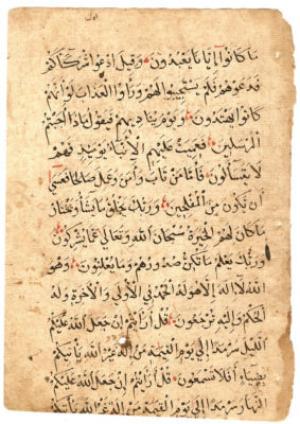 مَا كَانُوا إِيَّانَا يَعْبُدُونَ وَقِيلَ ادْعُوا شُرَكَاءَكُمْ
فَدَعَوْهُمْ فَلَمْ يَسْتَجِيبُوا لَهُمْ وَرَأَوُا الْعَذَابَ لَوْ أَنَّهُمْ
كَانُوا يَهْتَدُونَ وَيَوْمَ يُنَادِيهِمْ فَيَقُولُ مَاذَا أَجَبْتُمُ
الْمُرْسَلِينَ فَعَمِيَتْ عَلَيْهِمُ الْأَنْبَاءُ يَوْمَئِذٍ فَهُمْ
لَا يَتَسَاءَلُونَ فَأَمَّا مَنْ تَابَ وَآمَنَ وَعَمِلَ صَالِحًا فَعَسَى
أَنْ يَكُونَ مِنَ الْمُفْلِحِينَ وَرَبُّكَ يَخْلُقُ مَا يَشَاءُ وَيَخْتَارُ
مَا كَانَ لَهُمُ الْخِيَرَةُ سُبْحَانَ اللَّهِ وَتَعَالَى عَمَّا يُشْرِكُونَ
وَرَبُّكَ يَعْلَمُ مَا تُكِنُّ صُدُورُهُمْ وَمَا يُعْلِنُونَ وَهُوَ
اللَّهُ لَا إِلَهَ إِلَّا هُوَ لَهُ الْحَمْدُ فِي الْأُولَى وَالْآخِرَةِ وَلَهُ
الْحُكْمُ وَإِلَيْهِ تُرْجَعُونَ قُلْ أَرَأَيْتُمْ إِنْ جَعَلَ اللَّهُ عَلَيْكُمُ
اللَّيْلَ سَرْمَدًا إِلَى يَوْمِ الْقِيَمَةِ مَنْ إِلَهٌ غَيْرُ اللَّهِ يَأْتِيكُمْ
بِضِيَاءٍ أَفَلَا تَسْمَعُونَ قُلْ أَرَأَيْتُمْ إِنْ جَعَلَ اللَّهُ عَلَيْكُمُ
النَّهَارَ سَرْمَدًا إِلَى يَوْمِ الْقِيَمَةِ مَنْ إِلَهٌ غَيْرُ اللَّهِ يَأْتِيكُمْ